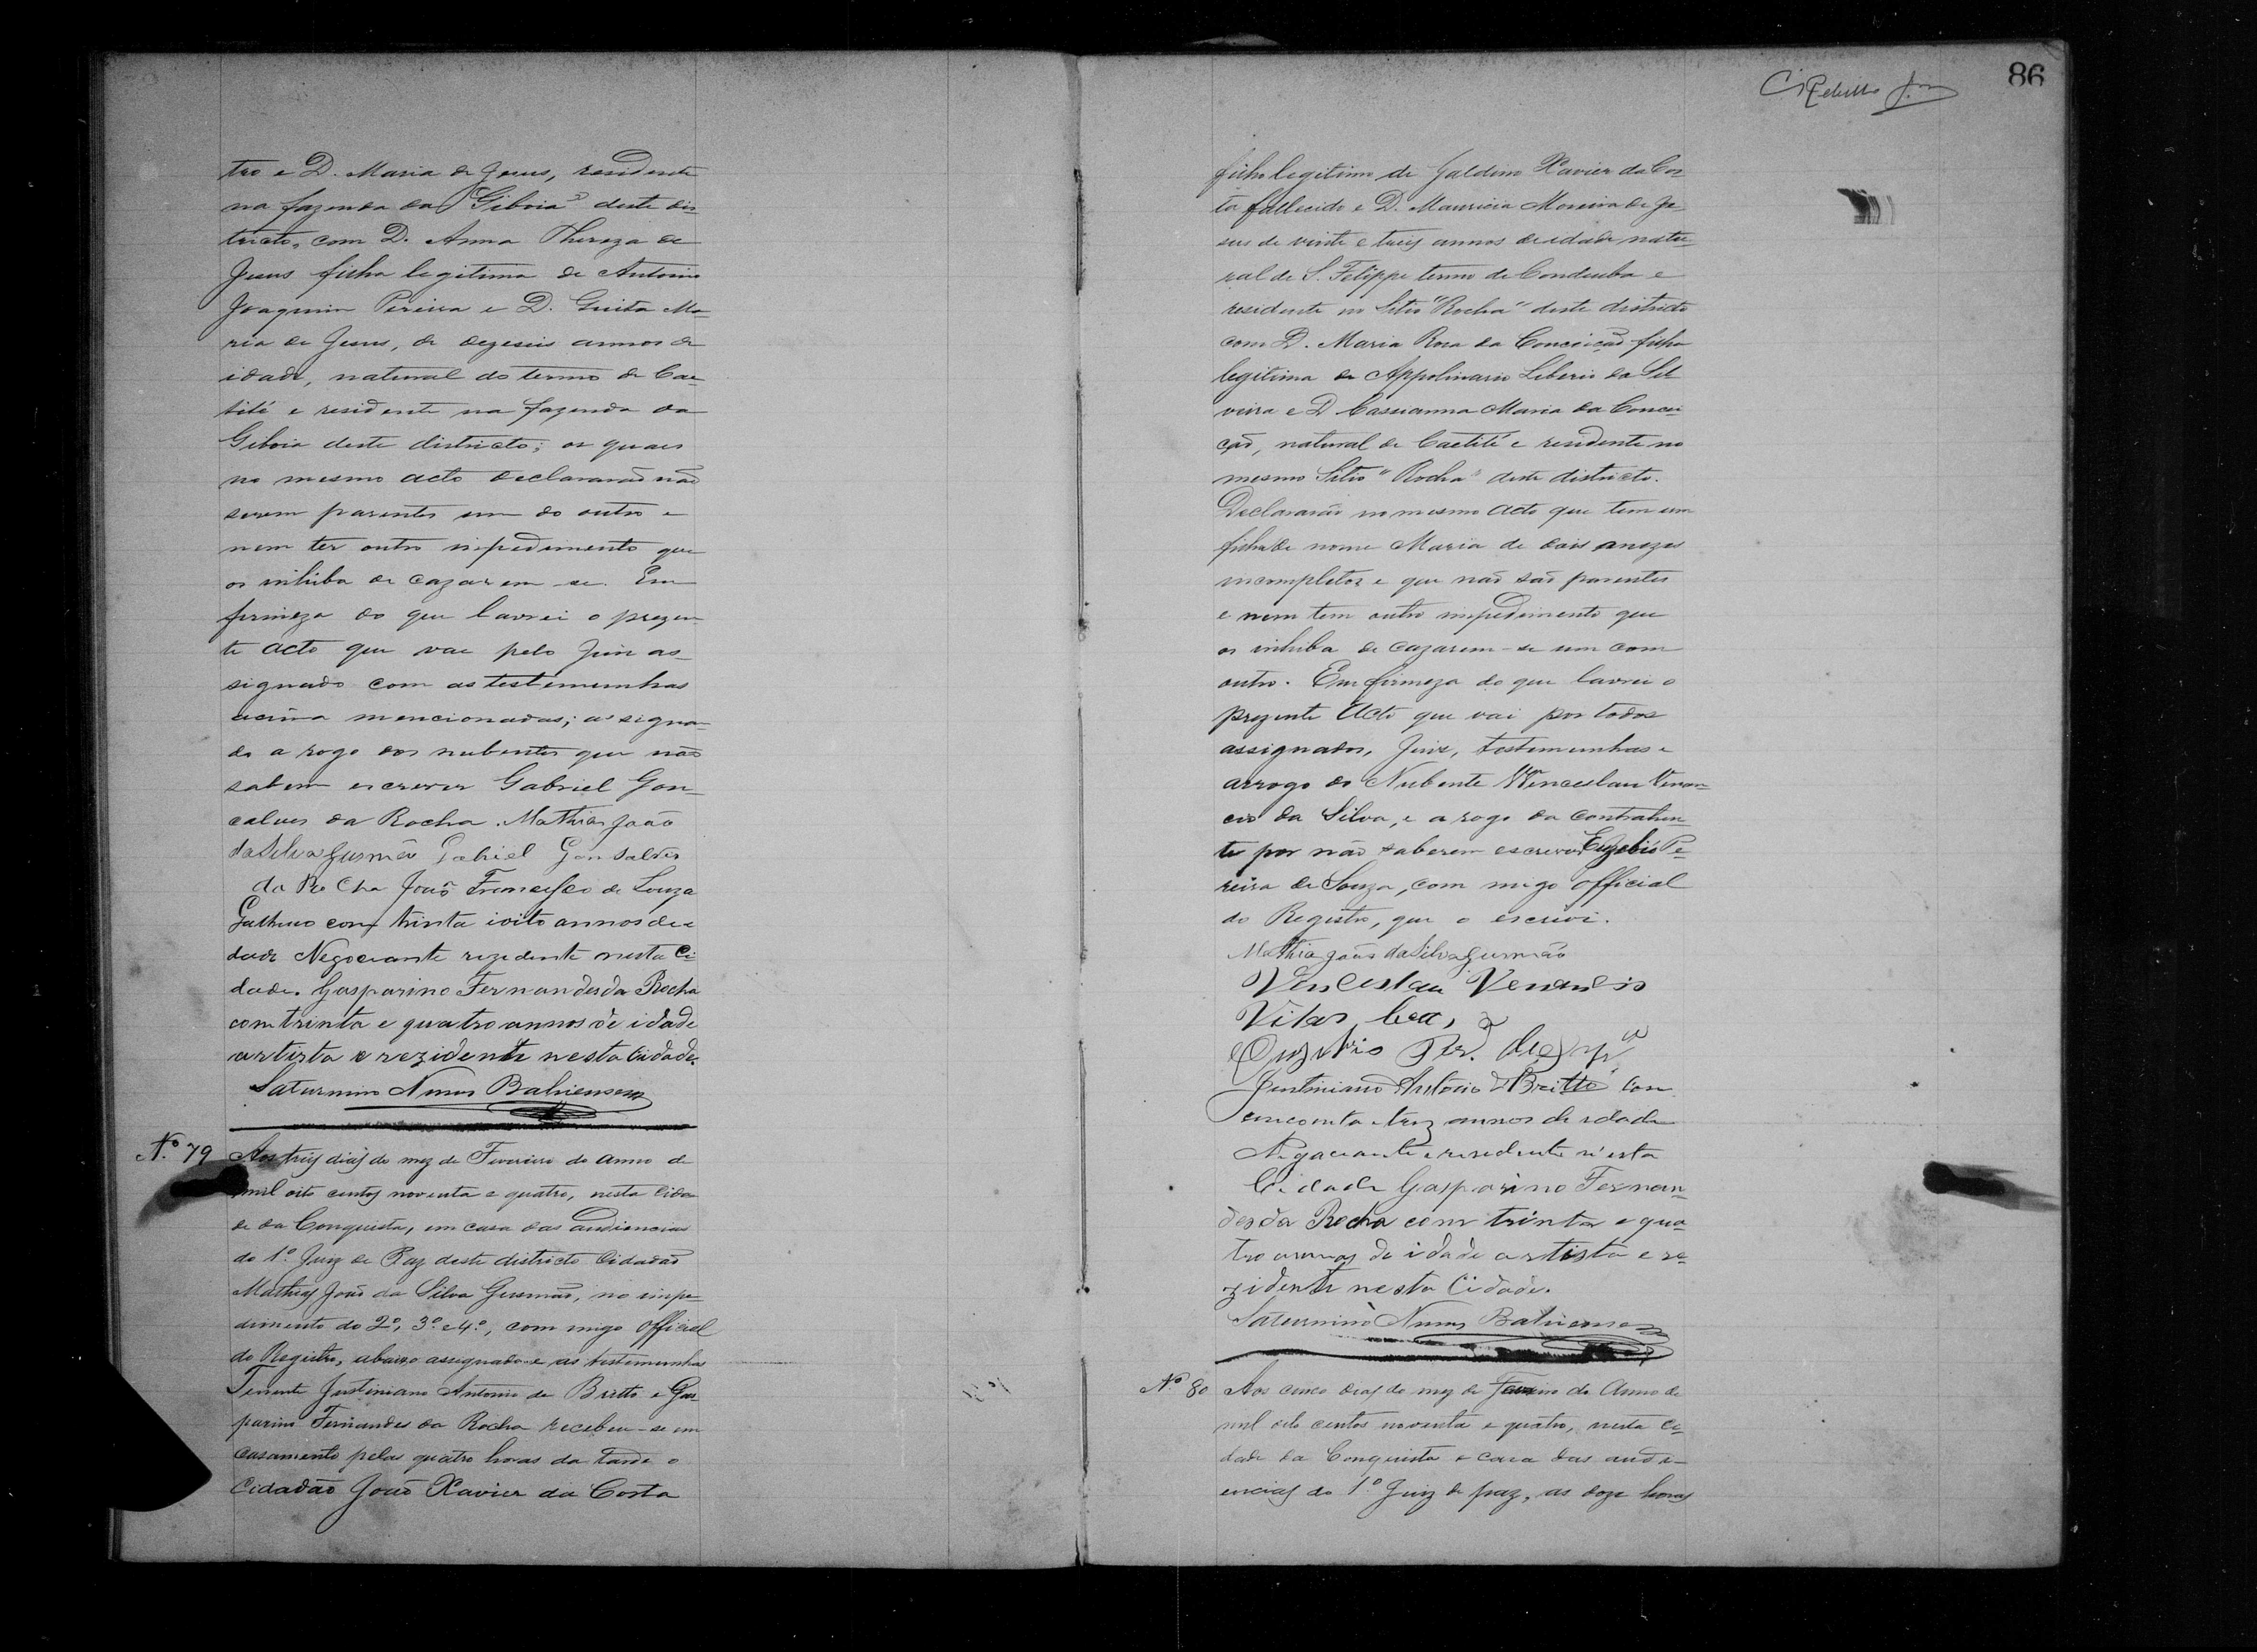 tro e D. Maria de Jesus, residente
na fazenda da "Giboia" deste dis-
tricto, com D. Anna Thereza de
Jesus filha legitima de Antonio
Joaquim Pereira e D. Guida Ma-
ria de Jesus, de dezeseis annos de
idade, natural do termo de Cae-
tité e residente na fazenda da
Giboia deste districto; os quaes
no mesmo acto declararaõ naõ
serem parentes um do outro e
nem ter outro impedimento que
os inhiba de cazarem-se. Em
firmeza do que lavrei o prezen-
te acto que vae pelo Juiz as-
signado com as testemunhas
acima mencionadas; assigna-
do a rogo dos nubentes que naõ
sabem escrever Gabriel Gon-
calves da Rocha. Mathias João
da Silva Gusmão Gabriel Gonsalves
da Rocha João Francisco de Souza
com trinta ioito annos de i
dade Negociante rezidente nesta Ci-
dade. Gasparino Fernandes da Rocha
com trinta e quatro annos de idade
artista e rezidente nesta Cidade.
Saturnino Nunes Bahiense
Nº 79 Aos tres dias do mez de Fevereiro do anno de
mil oito centos noventa e quatro, nesta Cida-
de da Conquista, em casa das audiencias
do 1º Juiz de Paz deste districto Cidadaõ
Mathias Joaõ da Silva Gusmaõ, no impe-
dimento do 2º, 3º e 4º, com migo Official
do Registro, abaixo assignado e as testemunhas
Tenente Justiniano Antonio de Britto e Gas-
parino Fernandes da Rocha recebeu-se em
casamento pelas quatro horas da tarde o
Cidadão João Xavier da Costa
86
filho legitimo de Galdino Xavier da Cos-
ta fallecido e D. Mauricia Moreira de Je-
sus de vinte e tres annos de idade natu-
ral de S. Felippe termo de Condeuba e
residente no Sitio "Rocha" deste districto
com D. Maria Rosa da Conceiçaõ filha
legitima de Appolinario Liberio da Sil
veira e D Cassianna Maria da Concei
çaõ, natural de Caetité e residente no
mesmo Sitio "Rocha" deste districto.
Declararaõ no mesmo acto que tem um
filha de nome Maria de dois
incompletos e que naõ saõ parentes
e nem tem outro impedimento que
os inhiba de cazarem-se um com
outro. Em firmeza do que lavrei o
prezente Acto que vai por todos
assignados, Juiz, testemunhas e
arrogo do Nubente Wenceslau Venan-
cio da Silva, e a rogo da contrahen-
te por não saberem escrever Euzebio Pe-
reira de Souza, com migo official
do Registro, que o escrivi.
Mathias João da Silva Gusmão
Venceslau Venancio
Euzebio Per.
Justiniano Antonio de Britto Com
cincoenta e trez annos de idade
Negaciante e residente n'esta
Cidade Gasparino Fernan-
des da Rocha com trinta e qua
tro annos de idade artista e re-
zidente nesta Cidade.
Saturnino Nunes Bahiense
Nº 80 Aos cinco dias do mez de Fevereiro do Anno de
mil oito centos noventa e quatro, nesta Ci-
dade da Conquista e casa das audi-
encias do 1º Juiz de paz, as doze horas